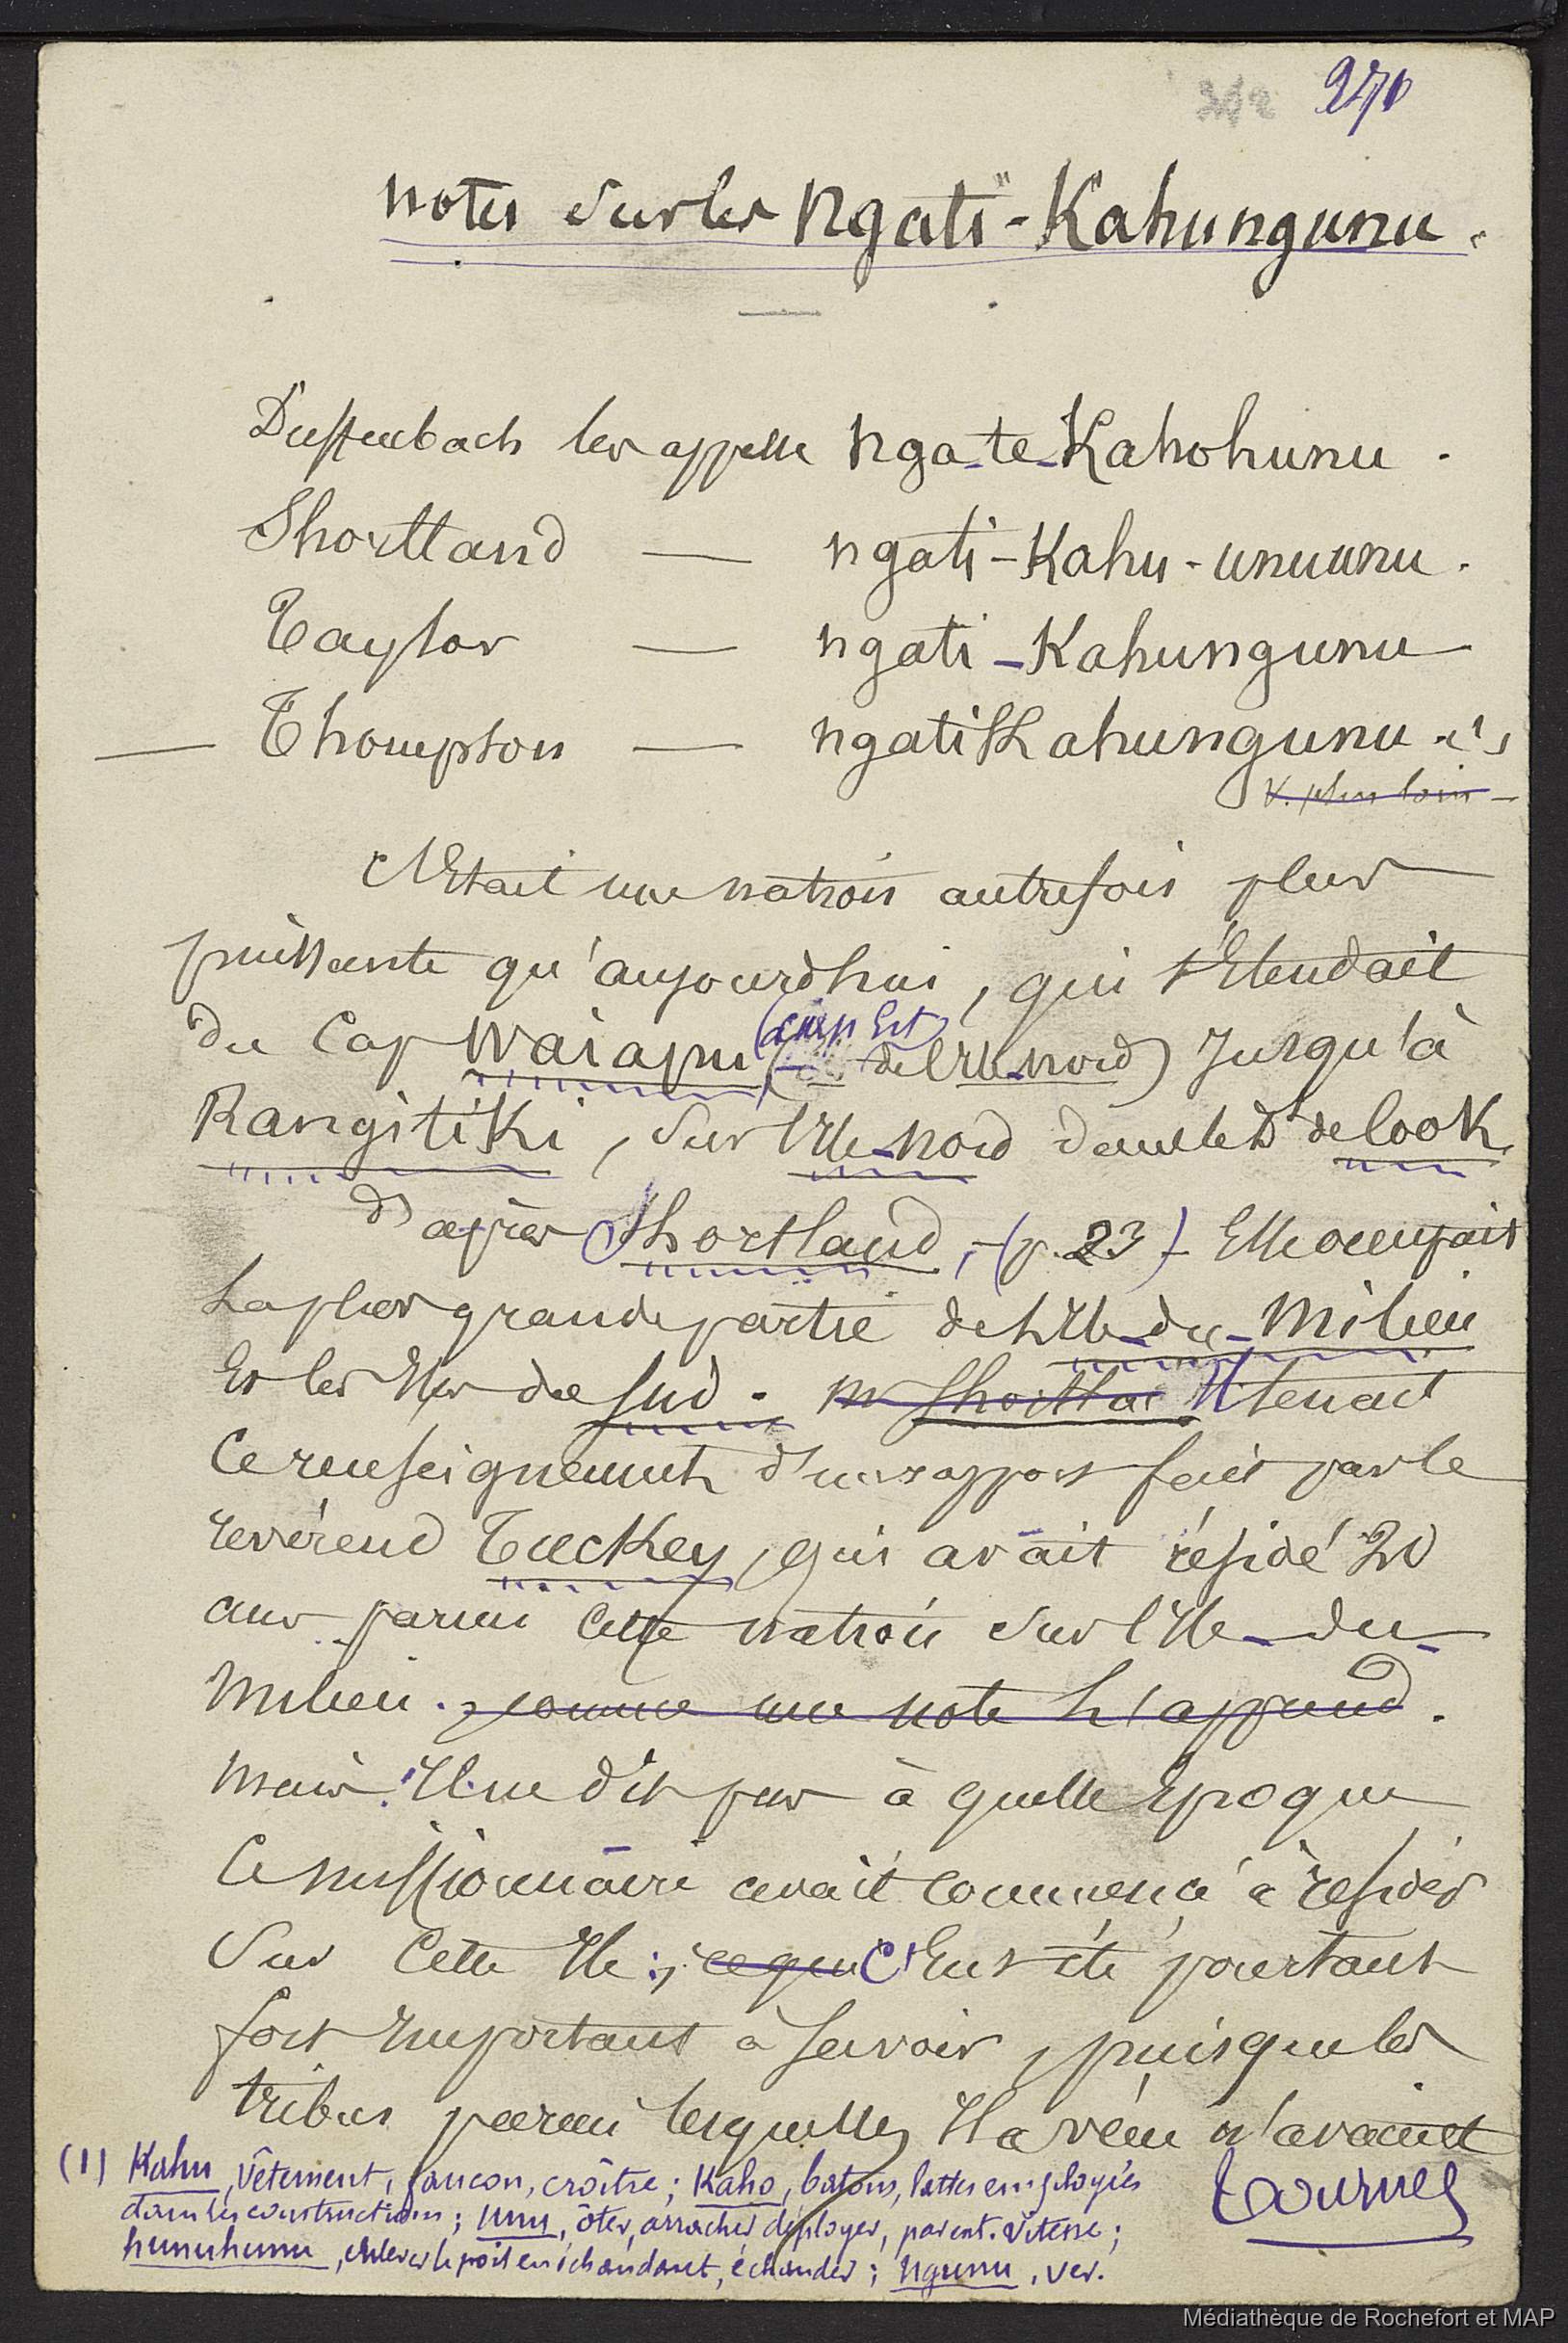 312 270
notes sur les Ngati-Kahungunu.
Dieffenbach les appelle Nga-te-Kahohunu.
Shortland — ngati-Kahu-unuunu.
Taylor — ngati-Kahungunu
— Thompson — ngati Kahungunu (1)
V. plus loin —
C'Etait une nation autrefois plus
puissante qu'aujourdhui, qui s'Etendait
du Cap Waiapu (cap Est) de l'Ile-nord) Jusqu'à
Rangitiki, sur l'Ile-Nord dans le Dt de Cook
d'après Shortland, (p. 23) - Elle occupait
La plus grande partie de l'Ile-du-Milieu
Et les Iles du Sud. Mr Shortlan Il tenait
Ce renseignement d'un rapport fait par le
révérend Tuckey, qui avait résidé 20
ans parmi Cette nation sur l'Ile-du-
Milieu. comme une note l'apprend.
Mais Il ne dit pas à quelle Epoque
Ce missionnaire avait commencé à résider
Sur Cette Ile:, ce qui C'Eut été pourtant
fort Important à Savoir, puisque les
tribus parmi lesquelles Il a vécu n'avaient
(1) Kahu, vêtement, faucon, croître; Kaho, batons, lattes employés
dans les constructions; unu, ôter, arracher déployer, parent. vitesse;
hunuhunu, enlever le poil en échaudant, échauder; ngunu, ver.
Tournez
Médiathèque de Rochefort et MAP